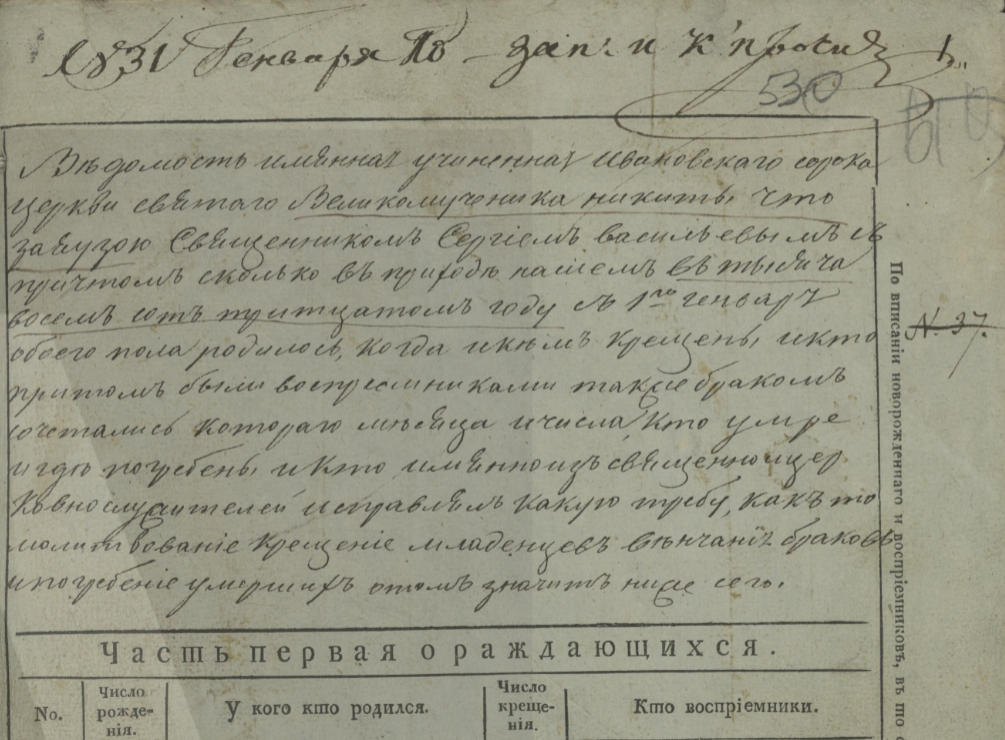 №31 Генваря 10 - зап: и к'
530
Вѣдомость имянная учиненная Ивановскаго сорока
церкви святаго Великомученика никиты что
заяузою Священникомъ Сергіемъ васильевымъ съ
причтомъ сколько въ приходѣ нашемъ въ тысяча
восемъ сотъ тритцатомъ году съ 1го генваря
обоего пола родилось, когда и кѣмъ крещены и кто
притомъ были воспрiемниками также бракомъ
сочетались котораго мѣсяца и числа, кто умре
и гдѣ погребены и кто имянно изъ священно и цер
ковнослужителей исправлялъ какую требу, какъ то
молитвованіе крещеніе младенцевъ вѣнчаніи браковъ
и погребеніе умершихъ о томъ значитъ ниже сего.
Часть первая о раждающихся.
No.
Число рожде-нія.
У кого кто родился.
Число креще-нія.
Кто воспріемники.
По вписаніи новорожденнаго и воспріемниковъ, въ то
N. 37.